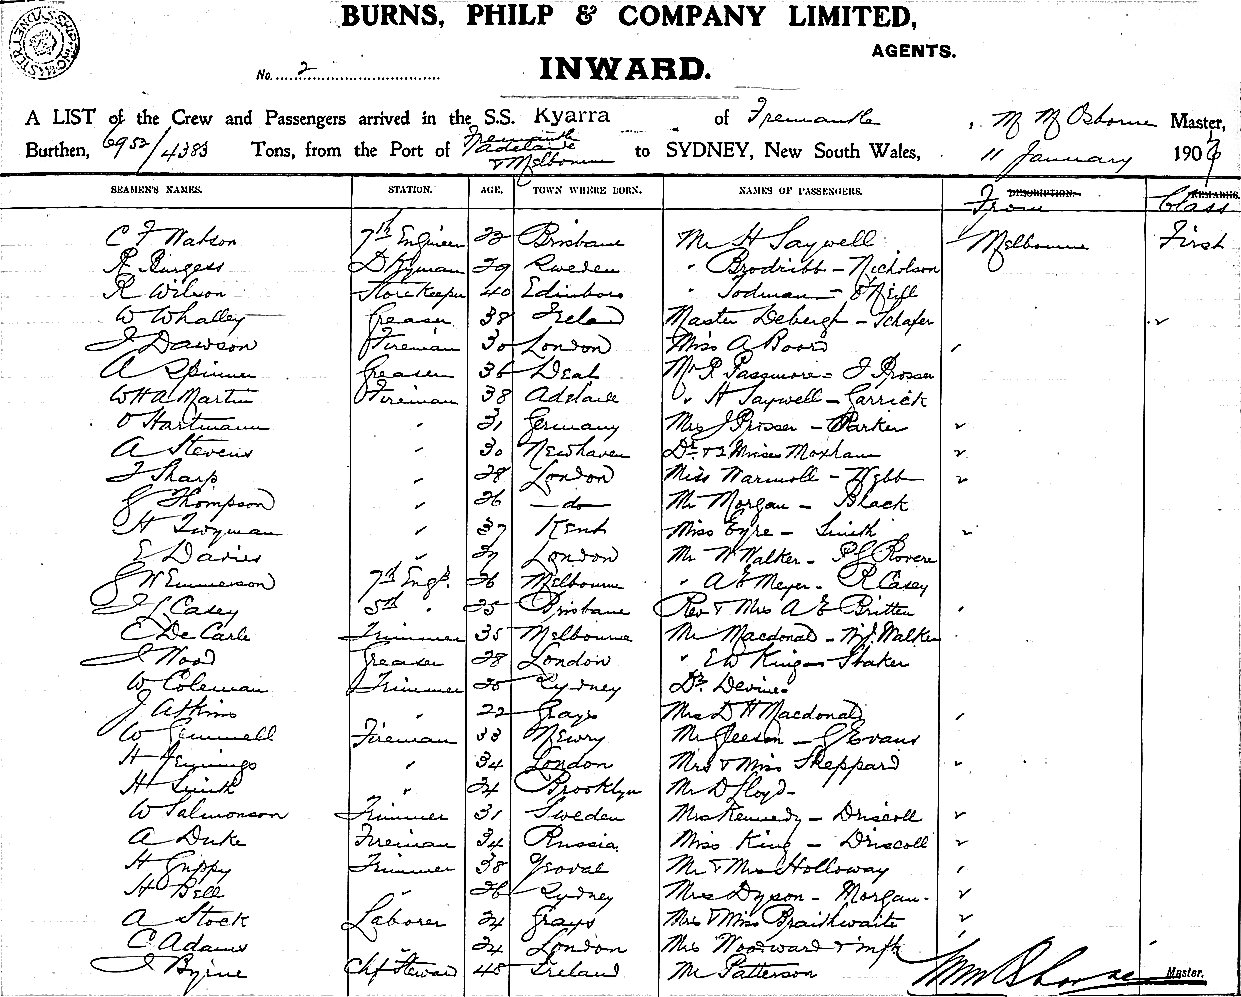 BURNS, PHILP & COMPANY LIMITED,
AGENTS.
No. 2
INWARD.
A LIST of the Crew and Passengers arrived in the S.S. Kyarra of Fremantle, M M Osborne Master,
Burthen, 6952/4383 Tons, from the Port of Fremantle Adelaide & Melbourne to SYDNEY, New South Wales, 11 January 190
SEAMEN'S NAMES. STATION. AGE. TOWN WHERE BORN. NAMES OF PASSENGERS. DESCRIPTION. From REMARKS. Class
C F Watson 7th Engineer 23 Brisbane Mr H Saywell Melbourne First
R Burgess Dkyman 29 Sweden " Brodribb - Nicholson
R Wilson Storekeeper 40 Edinboro " Todman - O'Neill
W Whalley Greaser 38 Irela Master Debergh - Schafer
J Dawson Fireman 30 London Miss A Board
A Spinner Greaser 36 Deal Mr R Passmore - J Prosser
W H A Martin Fireman 38 Adelaide " H Saywell - Garrick
O Hartmann " 31 Germany Mrs J Prosser - Parker
A Stevens " 30 Newhaven Dr & 2 Misses Moxham
J Sharp " 28 London Miss Warmoll - Webb
G Thompson " 26 - do - Mr Morgan - Black
H Twyman " 37 Kent Miss Eyre - Smith
E Davies " 27 London Mr W Walker - P G Rovere
G W Emmerson 7th Engr. 26 Melbourne " A E Meyer - R Casey
J L Casey 5th " 25 Brisbane Rev & Mrs A E Britten
C De Carle Trimmer 35 Melbourne Mr Macdonald - W J Walker
J Wood Greaser 28 London " E W King - Shaker
W Coleman Trimmer 20 Sydney Dr. Devine
J Atkins " 22 Grays Mrs D H Macdonald
W Gemmell Fireman 33 Newry Mr Gleeson - G Evans
H Jennings " 34 London Mrs & Miss Sheppard
H Smith " 24 Brooklyn Mr D Lloyd -
W Salmonson Trimmer 31 Sweden Mrs Kennedy - Driscoll
A Duke Fireman 34 Russia Miss King - Driscoll
H Guppy Trimmer 38 Yeoval Mr & Mrs Holloway
H Bell " 26 Sydney Mrs Dyson - Morgan -
A Stock Laborer 24 Grays Mrs & Miss Braithwaite
C Adams " 24 London Mrs Woodward & infk
J Byrne Chf Steward 48 Ireland Mr Patterson
Master.